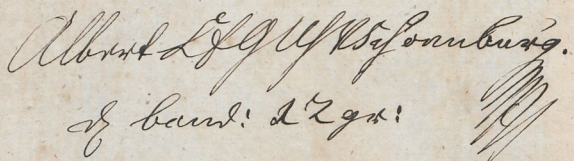 Albert C F G U H V Schoenburg.
d band: 22 gr: